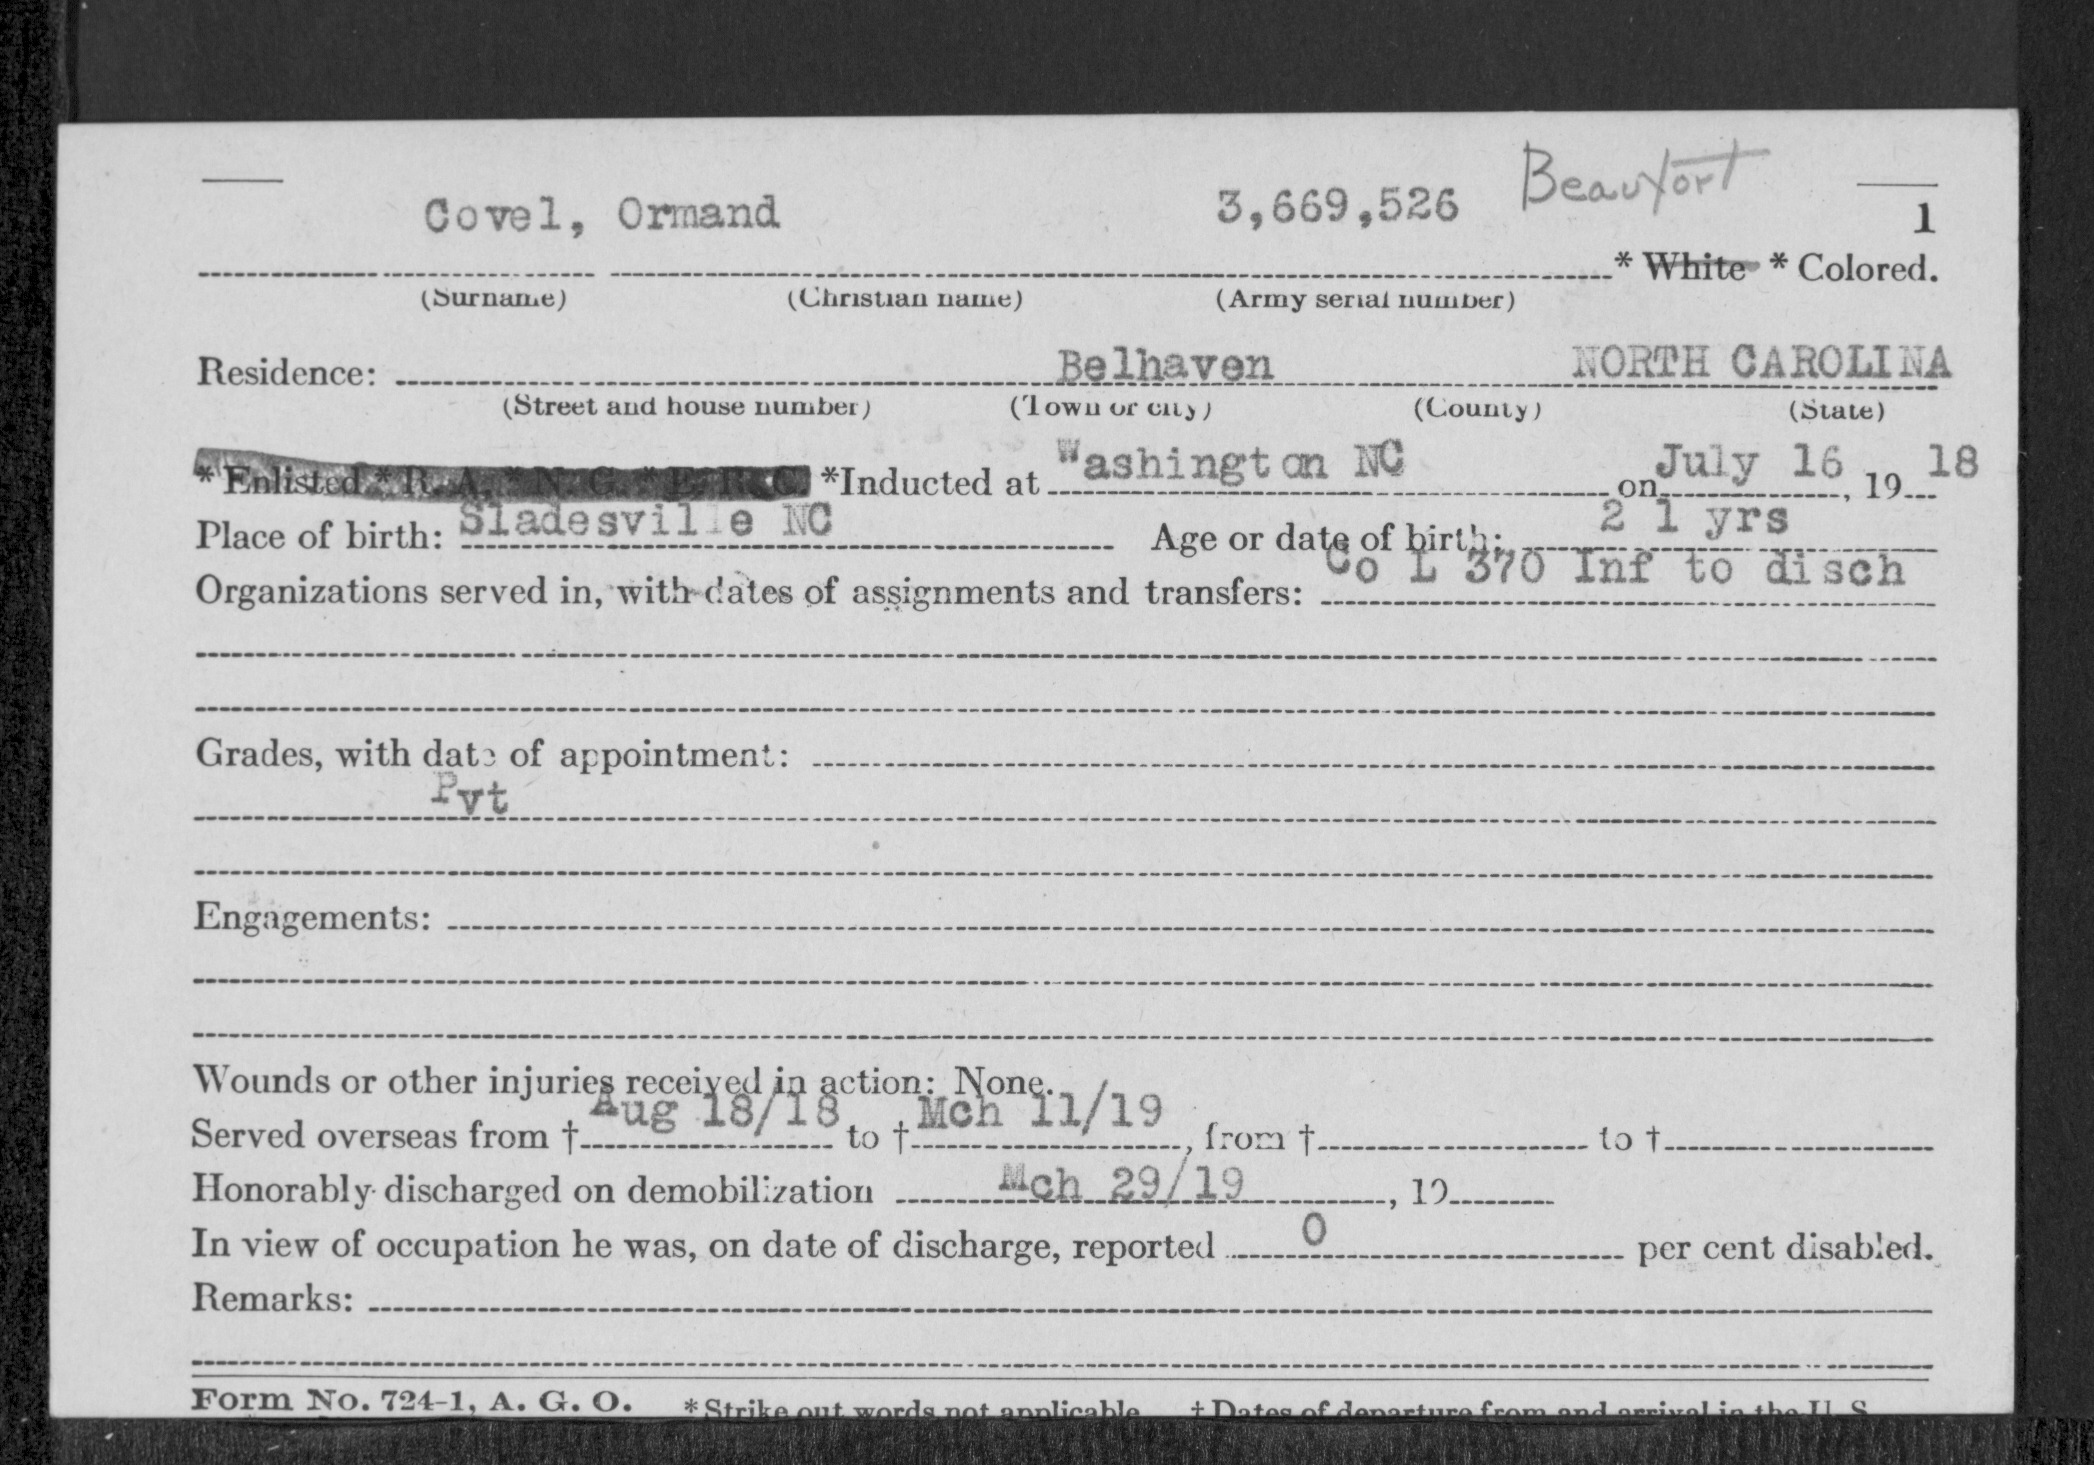 Covel, Ormand 3,669,526 Beaufort 1
* White * Colored.
(Surname) (Christian name) (Army serial number)
Residence: Belhaven NORTH CAROLINA
(Street and house number) (Town or city) (County) (State)
* Enlisted * R. A. * N. G. * E. R. C. *Inducted at Washington NC on July 16, 19 18
Place of birth: Sladesville NC Age or date of birth: 21 yrs
Organizations served in, with dates of assignments and transfers: Co L 370 Inf to disch
Grades, with date of appointment:
Pvt
Engagements:
Wounds or other injuries received in action: None.
Served overseas from † Aug 18/18 to † Mch 11/19, from † to †
Honorably discharged on demobilization Mch 29/19, 19
In view of occupation he was, on date of discharge, reported 0 per cent disabled.
Remarks:
Form No. 724-1, A. G. O. *Strike out words not applicable † Dates of departure from and arrival in the U. S.